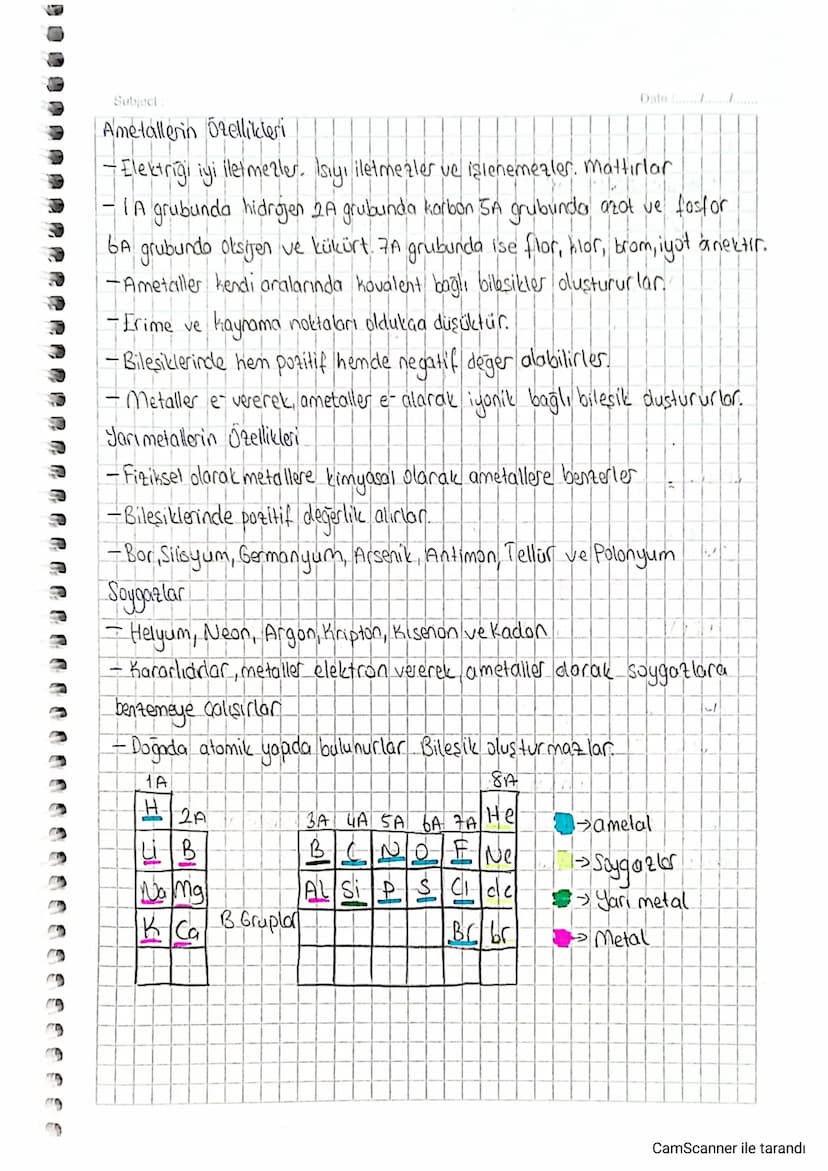 Subject :
Date :......./......./.......
Ametallerin Özellikleri
- Elektriği iyi iletmezler. Isıyı iletmezler ve işlenemezler. Mattırlar
- 1A grubunda hidrojen 2A grubunda karbon 5A grubunda azot ve fosfor
6A grubunda oksijen ve kükürt. 7A grubunda ise flor, klor, brom, iyot örnektir.
- Ametaller kendi aralarında kovalent bağlı bileşikler oluştururlar.
- Erime ve kaynama noktaları oldukça düşüktür.
- Bileşiklerinde hem pozitif hemde negatif değer alabilirler.
- Metaller e- vererek, ametaller e- alarak iyonik bağlı bileşik oluştururlar.
Yarımetallerin Özellikleri
- Fiziksel olarak metallere kimyasal olarak ametallere benzerler
- Bileşiklerinde pozitif değerlik alırlar.
- Bor, Silisyum, Germanyum, Arsenik, Antimon, Tellür ve Polonyum
Soygazlar
- Helyum, Neon, Argon, Kripton, Kısenon ve Kadon
- Kararlıdırlar, metaller elektron vererek, ametaller alarak soygazlara
benzemeye çalışırlar
- Doğada atomik yapıda bulunurlar. Bileşik oluşturmazlar.
1A 8A
H 2A 3A 4A 5A 6A 7A He
Li B B C N O F Ne
Na Mg Al Si P S Cl
K Ca B Gruplar Br br
→ ametal
→ Soygazlar
→ Yarı metal
→ Metal
CamScanner ile tarandı